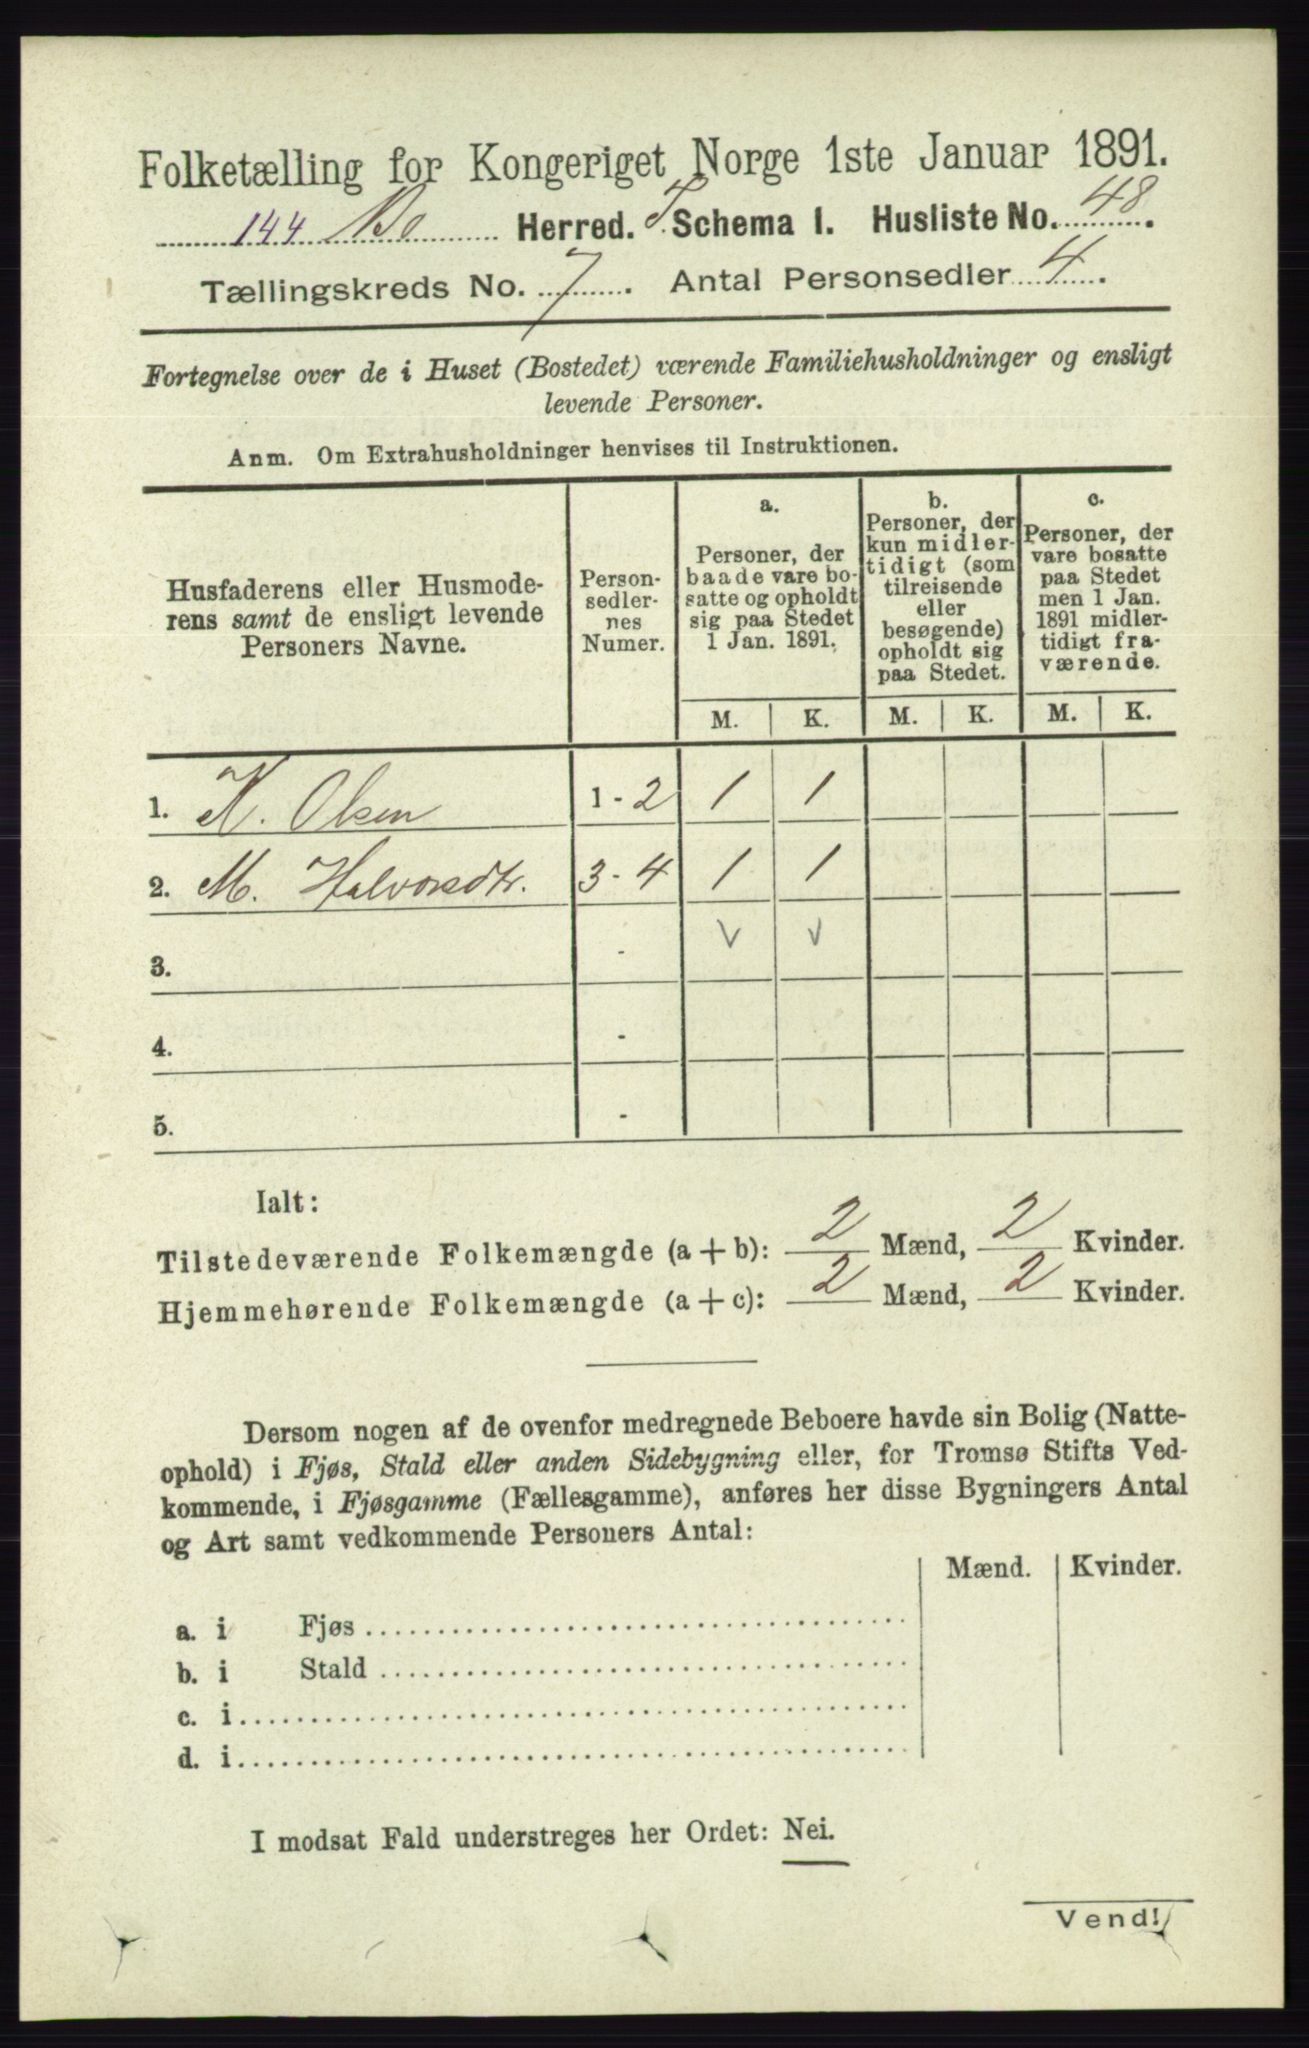 Folketælling for Kongeriget Norge 1ste Januar 1891.
144 Bø Herred. T. Schema I. Husliste No. 48.
Tællingskreds No. 7. Antal Personsedler 4.
Fortegnelse over de i Huset (Bostedet) værende Familiehusholdninger og ensligt
levende Personer.
Anm. Om Extrahusholdninger henvises til Instruktionen.
Husfaderens eller Husmode-
rens samt de ensligt levende
Personers Navne.
Person-
sedler-
nes
Numer.
a.
Personer, der
baade vare bo-
satte og opholdt
sig paa Stedet
1 Jan. 1891.
b.
Personer, der
kun midler-
tidigt (som
tilreisende
eller
besøgende)
opholdt sig
paa Stedet.
c.
Personer, der
vare bosatte
paa Stedet
men 1 Jan.
1891 midler-
tidigt fra-
værende.
M. K. M. K. M. K.
1. K. Olsen 1 - 2 1 1
2. M. Halvorsdtr. 3 - 4 1 1
3. - V V
4. -
5. -
Ialt:
Tilstedeværende Folkemængde (a + b): 2 Mænd, 2 Kvinder.
Hjemmehørende Folkemængde (a + c): 2 Mænd, 2 Kvinder.
Dersom nogen af de ovenfor medregnede Beboere havde sin Bolig (Natte-
ophold) i Fjøs, Stald eller anden Sidebygning eller, for Tromsø Stifts Ved-
kommende, i Fjøsgamme (Fællesgamme), anføres her disse Bygningers Antal
og Art samt vedkommende Personers Antal:
Mænd. Kvinder.
a. i Fjøs
b. i Stald
c. i
d. i
I modsat Fald understreges her Ordet: Nei.
Vend!